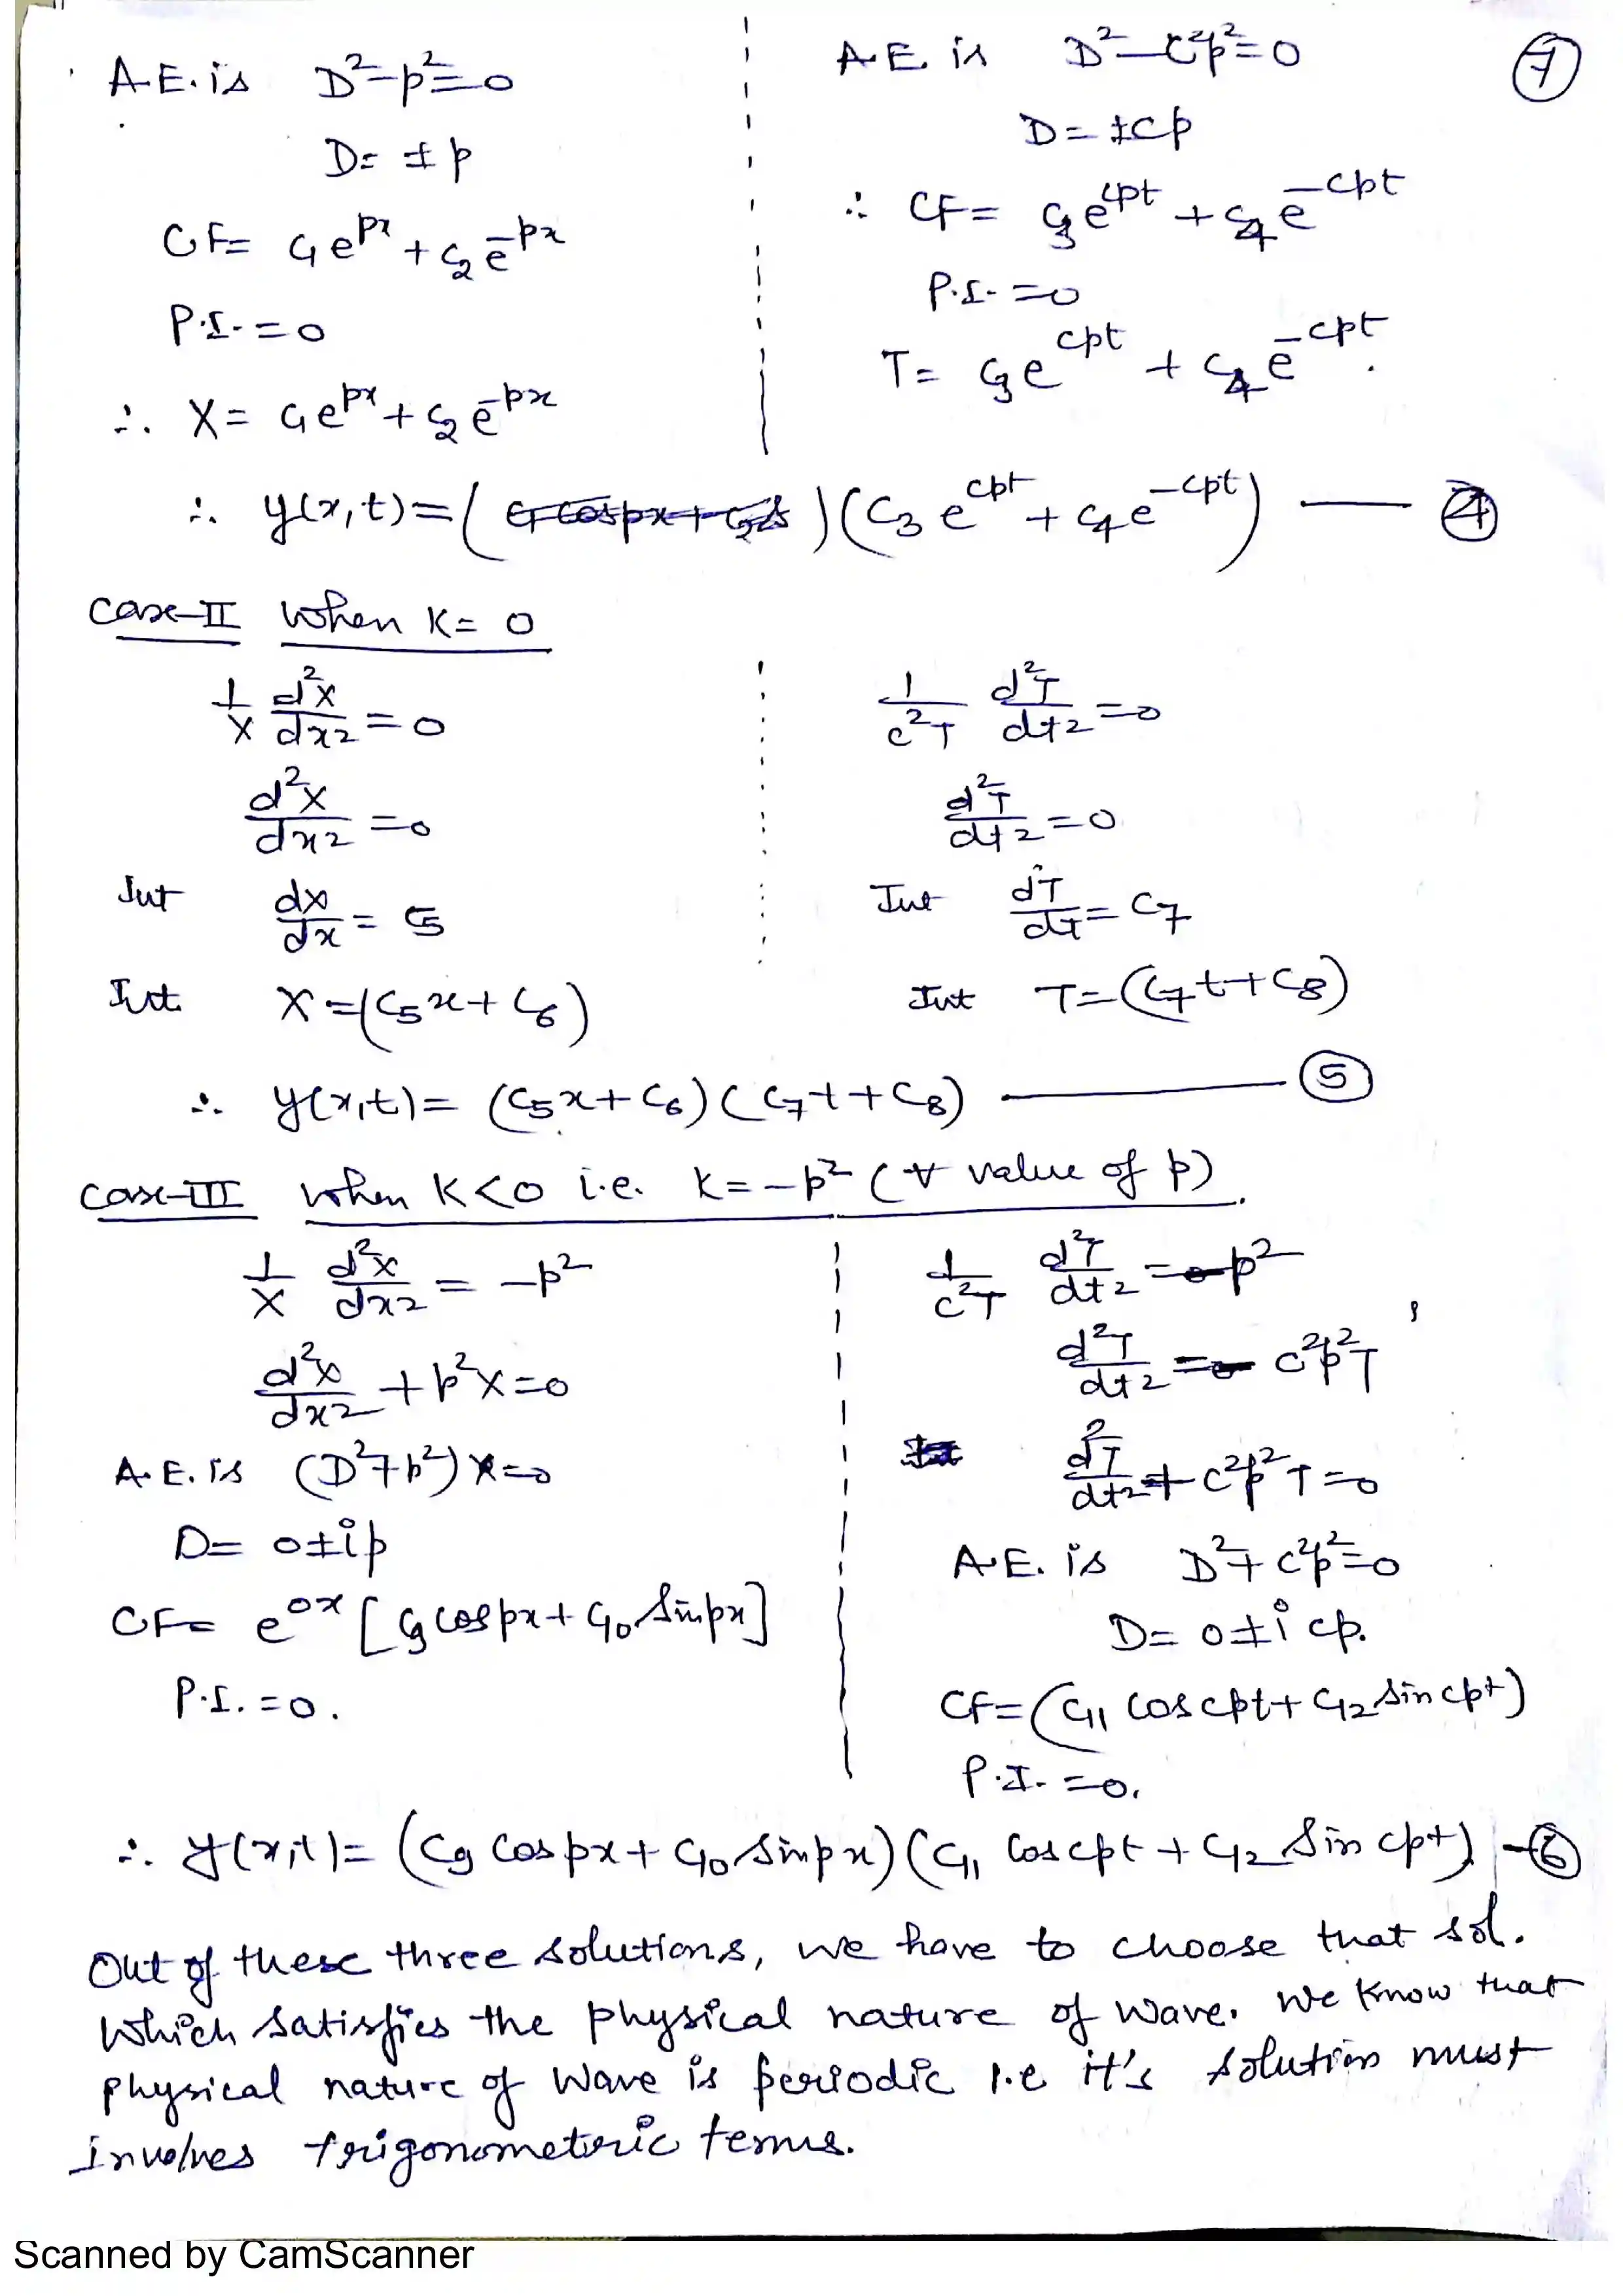 A.E. is D²-p²=0
D= ±p
CF= C₁e^px + C₂e^-px
P.I.=0
∴ X= C₁e^px + C₂e^-px
A.E. is D²-C²p²=0
D= ±Cp
∴ CF= C₃e^cpt + C₄e^-cpt
P.I.=0
T= C₃e^cpt + C₄e^-cpt.
7
∴ y(x,t)=( C₁cospx+C₂ )(C₃e^cpt + C₄e^-cpt) — 4
Case-II When K= 0
1/X d²X/dx² = 0
d²X/dx² =0
Int dX/dx = C₅
Int X=(C₅x+C₆)
1/c²T d²T/dt² =0
d²T/dt² =0
Int dT/dt = C₇
Int T=(C₇t+C₈)
∴ y(x,t)= (C₅x+C₆)(C₇t+C₈) — 5
Case-III When K<0 i.e. K=-p² (∀ value of p).
1/X d²X/dx² = -p²
d²X/dx² + p²X=0
A.E. is (D²+p²)X=0
D= 0±ip
CF= e^0x [C₉cospx+C₁₀ Sinpx]
P.I.=0.
1/c²T d²T/dt² = -p²
d²T/dt² = - c²p²T
d²T/dt² + c²p²T=0
A.E. is D²+c²p²=0
D= 0±i cp.
CF=(C₁₁ coscpt+C₁₂ Sincpt)
P.I.=0.
∴ y(x,t)= (C₉ Cospx+C₁₀ Sinpx)(C₁₁ Coscpt+C₁₂ Sin cpt) — 6
Out of these three solutions, we have to choose that sol.
which satisfies the physical nature of wave. We know that
physical nature of wave is periodic i.e it's solution must
involves trigonometric terms.
Scanned by CamScanner